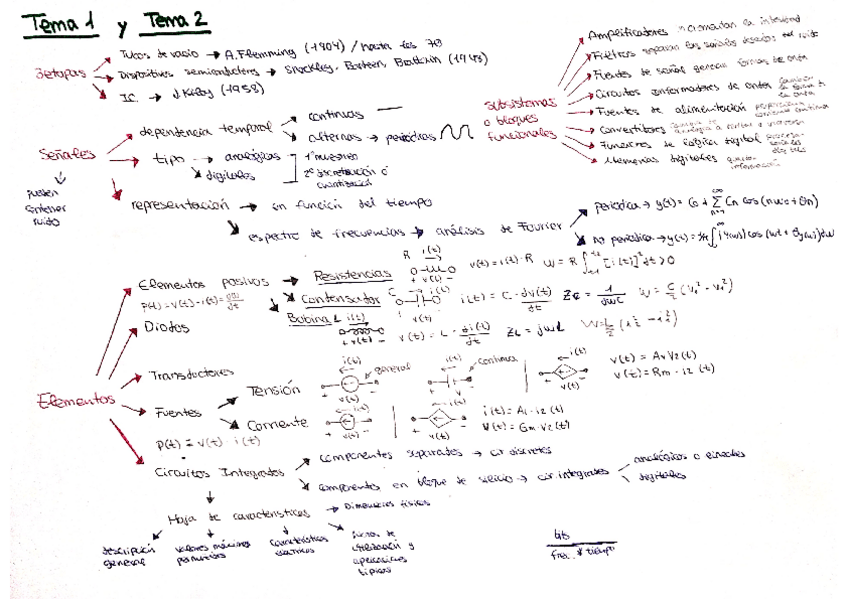 Tema 1 y Tema 2
3 etapas
Tubos de vacio → A. Flemming (1904) / hasta los 70
Dispositivos semiconductores → Shockley, Bardeen, Brattain (1948)
I.C. → J. Kilby (1958)
Subsistemas o bloques funcionales
Amplificadores incrementan la intensidad
Filtros separan las señales deseadas del ruido
Fuentes de señal generan formas de onda
Circuitos conformadores de onda cambian la forma de la onda
Fuentes de alimentación proporcionan corriente continua
Convertidores
Funciones de lógica digital
Memorias digitales guardan información
Señales
pueden contener ruido
dependencia temporal
continuas
alternas → periódicas
tipo → analógicas
digitales
1º muestreo
2º discretización o cuantización
representación → en función del tiempo
espectro de frecuencias → análisis de Fourier
periódica → y(t) = C0 + Σ Cn cos(nω0t + θn)
no periódica → y(t) =
Elementos
Elementos pasivos → Resistencias
P(t) = v(t) · i(t) = dW/dt
R i(t)
+ v(t) -
v(t) = i(t) · R
W = R ∫ [i(t)]² dt > 0
Condensador
C i(t)
v(t)
i(t) = C · dv(t)/dt
Zc = 1/jωC
W = C/2 (V₁² - V₂²)
Bobina L i(t)
+ v(t) -
v(t) = L · di(t)/dt
ZL = jωL
W = L/2
Diodos
Transductores
Fuentes
P(t) = v(t) · i(t)
Tensión
i(t) general
v(t)
i(t) continua
v
i(t)
v(t)
v(t) = Av V2(t)
v(t) = Rm · i2(t)
Corriente
i(t)
v(t)
i(t)
v(t)
i(t) = Ai · i2(t)
V(t) = Gm · V2(t)
Circuitos Integrados
componentes separados → cir discretos
componentes en bloque de silicio → cir. integrados
analógicos o lineales
digitales
Hoja de características → Dimensiones físicas
descripción general
valores máximos permitidos
características eléctricas
notas de utilización y aplicaciones típicas
bits
frec. * tiempo